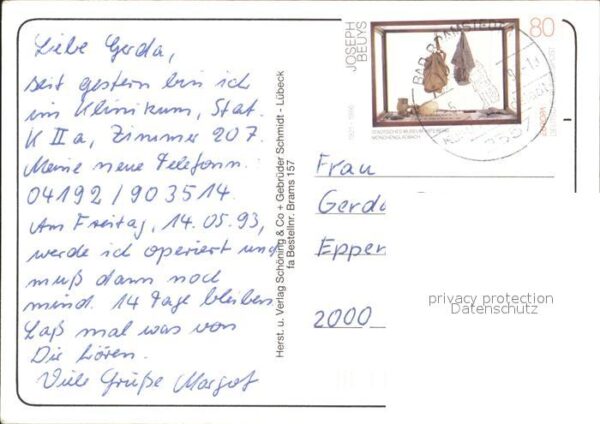 Liebe Gerda,
seit gestern bin ich
im Klinikum, Stat.
K II a, Zimmer 207.
Meine neue Telefonn.
04192/903514.
Am Freitag, 14.05.93,
werde ich operiert und
muß dann noch
mind. 14 Tage bleiben.
Laß mal was von
Dir hören.
Viele Grüße Margot
Herst. u. Verlag Schöning & Co + Gebrüder Schmidt - Lübeck
fa Bestellnr. Brams 157
JOSEPH
BEUYS
80
STÄDTISCHES MUSEUM ABTEIBERG
MÖNCHENGLADBACH
BAD BRAMSTEDT
Frau
Gerda
Epper
2000
privacy protection
Datenschutz